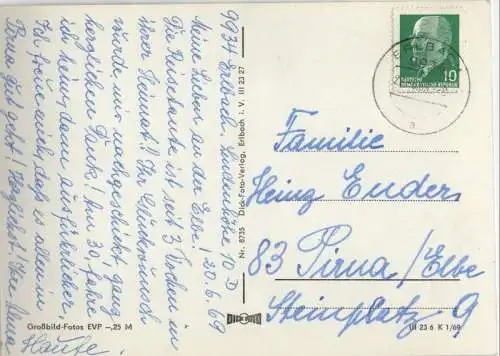 9934 Erlbach, Lindenhöhe 10 D
Meine Lieben an der Elbe! 20.6.69
Die Rischtante ist seit 3 Wochen in
ihrer Heimat! Ihr Glückwunsch
wurde mir nachgeschickt, ganz
herzlichen Dank! Am 30. fahre
ich heim, dann ausführlicher,
Ich freue mich, daß es allein
Pirna gut geht! Herzlichst! Ihre
Haufe.
Großbild-Fotos EVP –,25 M
Nr. 8735 Dick-Foto-Verlag, Erlbach i. V. III 23 27
DICK FOTO
ERLBA
DEUTSCHE
DEMOKRATISCHE REPUBLIK
10
a
Familie
Heinz Enders
83 Pirna/Elbe
Steinplatz 9
III 23 6 K 1/69